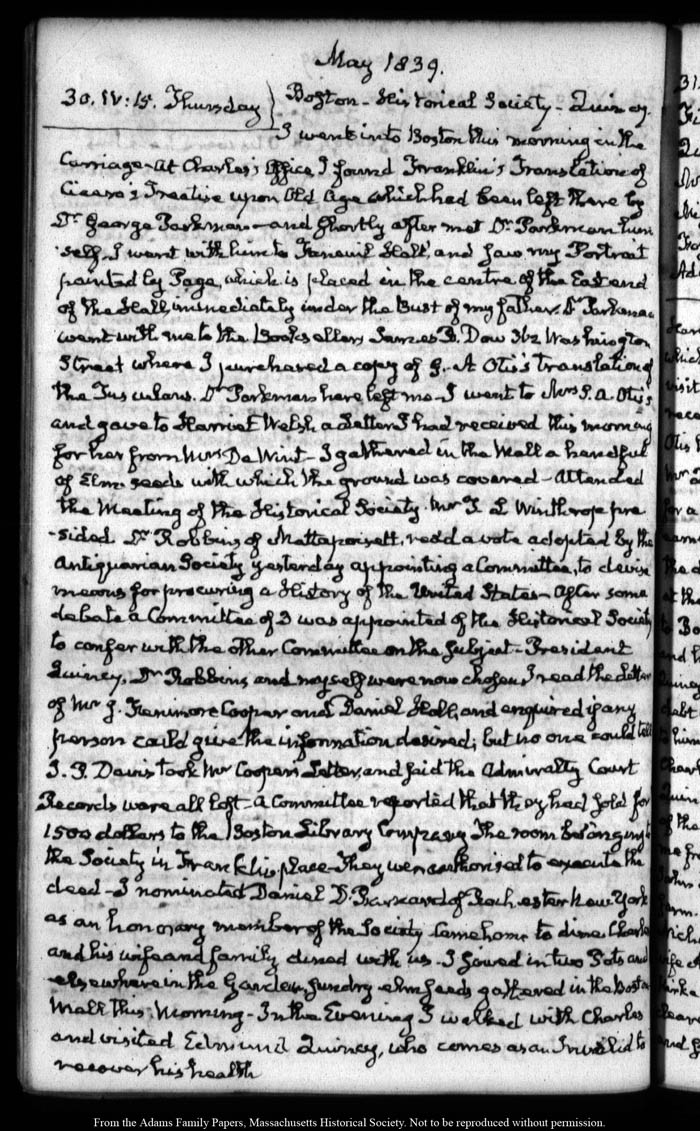 May 1839.
30. IV:15. Thursday } Boston - Historical Society - Quincy.
I went into Boston this morning in the
Carriage - At Charles's Office, I found Franklin's Translation of
Cicero's Treatise upon Old Age which had been left there by
Dr George Parkman - and shortly after met Dr Parkman him
-self. I went with him to Faneuil Hall, and saw my Portrait
painted by Page, which is placed in the centre of the East end
of the Hall immediately under the Bust of my father. Dr Parkman
went with me to the Booksellers James B. Dow 362 Washington
Street where I purchased a copy of G. A Otis's translation of
the Tusculans. Dr Parkman here left me - I went to Mrs S. A. Otis's
and gave to Harriet Welsh a Letter I had received this morning
for her from Mrs De Wint - I gathered in the Mall a handful
of Elm-seeds with which the ground was covered - Attended
the Meeting of the Historical Society. Mr T. L Winthrop pre
-sided. Dr Robbins of Mattapoisett, read a vote adopted by the
Antiquarian Society yesterday appointing a Committee, to devise
means for procuring a History of the United States - After some
debate a Committee of 3 was appointed of the Historical Society
to confer with the other Committee on the subject - President
Quincy, Dr Robbins and myself were now chosen, I read the Letter
of Mr J. Fenimore Cooper and Daniel Hall, and enquired if any
person could give the information desired; but no one could tell
J. P. Davis took Mr Cooper's Letter, and said the Admiralty Court
Records were all lost - A Committee reported that they had sold for
1500 dollars to the Boston Library Company The room belonging to
the Society in Franklin place - They were authorised to execute the
deed - I nominated Daniel D. Barnard of Rochester New York
as an honorary member of the Society Came home to dine. Charles
and his wife and family dined with us - I sowed in two Pots and
elsewhere in the Garden, sundry elm seeds gathered in the Boston
Mall this Morning - In the Evening I walked with Charles
and visited Edmund Quincy, who comes as an Invalid to
recover his health
From the Adams Family Papers, Massachusetts Historical Society. Not to be reproduced without permission.